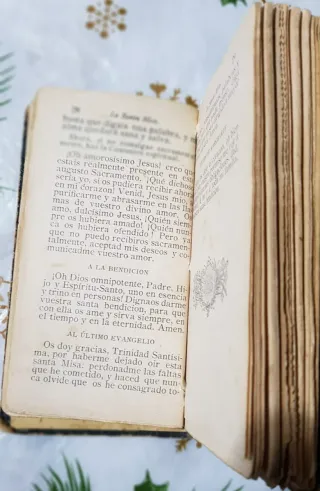 La Santa Misa.
basta que digais una palabra, y
alma quedará sana y salva.
¡Oh amorosísimo Jesus! creo que
estais realmente presente en ese
augusto Sacramento. ¡Qué dichoso
sería yo, si os pudiera recibir ahora
en mi corazon! Venid, Jesus mio, á
purificarme y abrasarme en las lla-
mas de vuestro divino amor. Os
amo, dulcísimo Jesus. ¡Quién siem-
pre os hubiera amado! ¡Quién nun-
ca os hubiera ofendido! Pero ya
que no puedo recibiros sacramen-
talmente, aceptad mis deseos y co-
municadme vuestro amor.
A LA BENDICION
¡Oh Dios omnipotente, Padre, Hi-
jo y Espíritu-Santo, uno en esencia
y trino en personas! Dignaos darme
vuestra santa bendicion, para que
con ella os ame y sirva siempre, en
el tiempo y en la eternidad. Amen.
AL ÚLTIMO EVANGELIO
Os doy gracias, Trinidad Santísi-
ma, por haberme dejado oir esta
santa Misa: perdonadme las faltas
que he cometido, y haced que nun-
ca olvide que os he consagrado to-